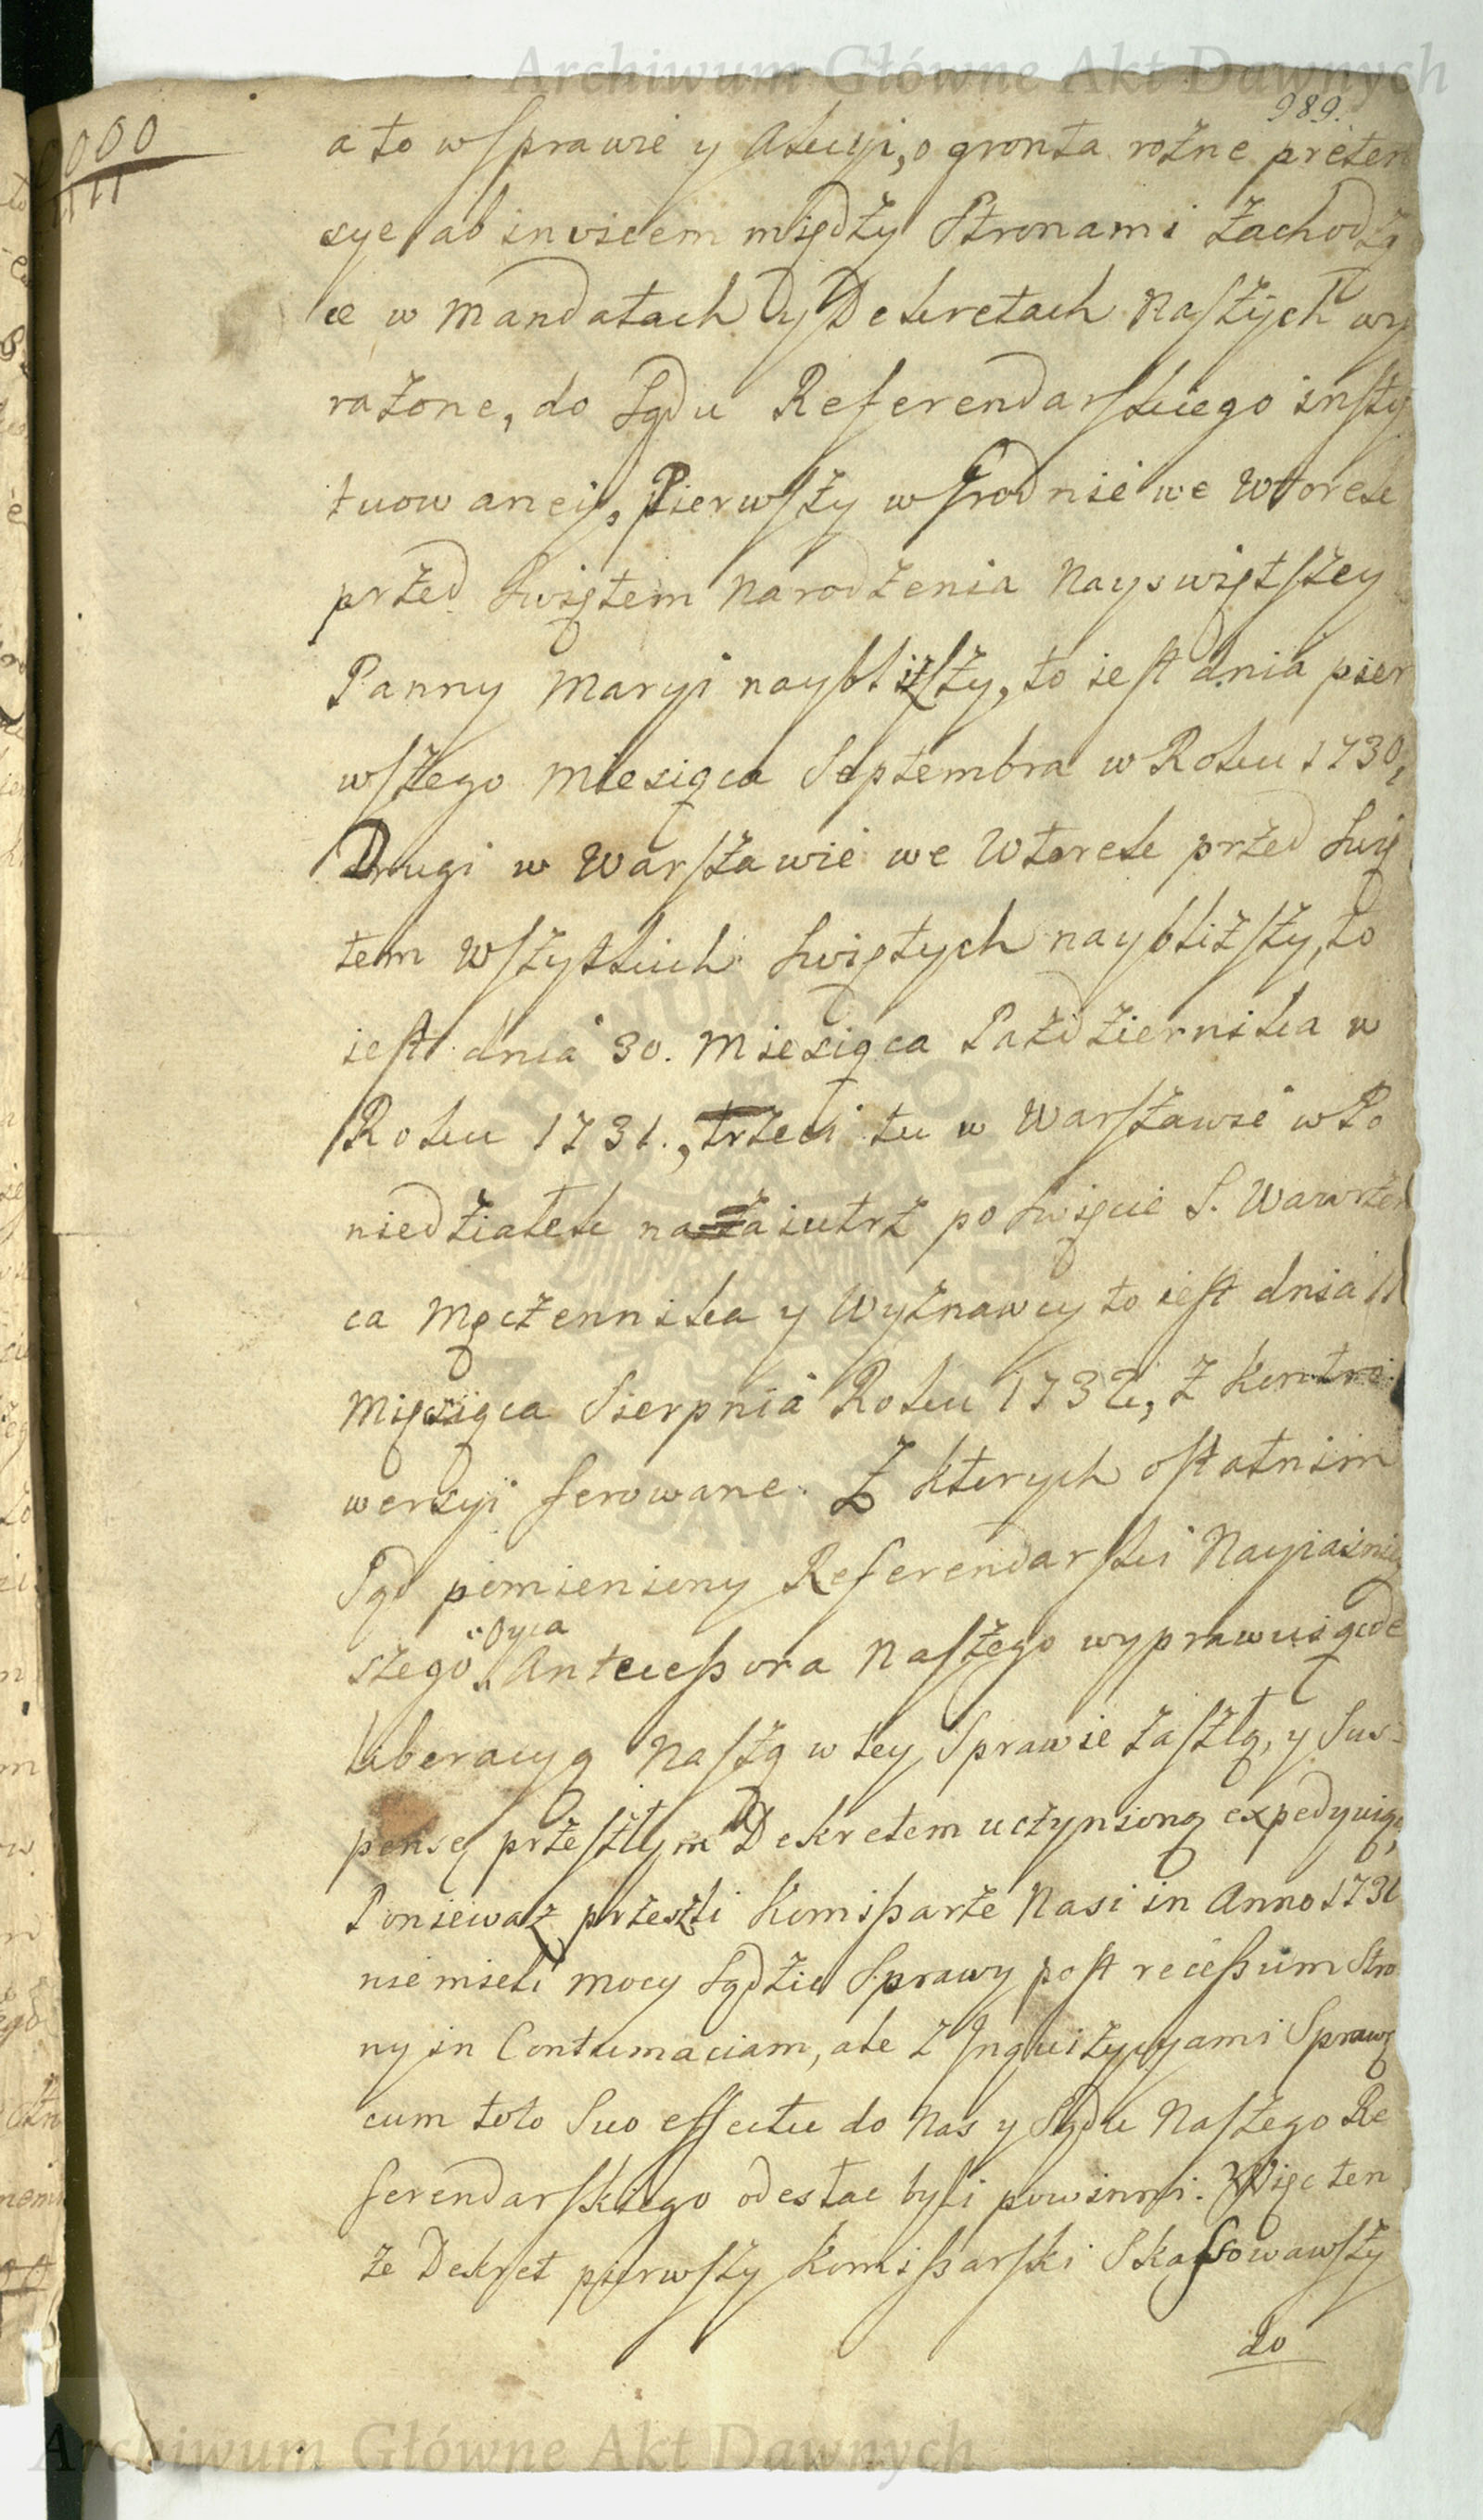 Archiwum Główne Akt Dawnych
989.
000
1111
a to w sprawie y Akcyi, o gronta rożne preten
sye ab invicem między Stronami zachodzą
ce w Mandatach y Dekretach Naszych wy
rażone, do Sądu Referendarskiego insty
tuowaney, Pierwszy w Grodnie we Wtorek
przed Swiętem Narodzenia Nayswiętszey
Panny Maryi naybliższy, to iest dnia pier
wszego Miesiąca Septembra w Roku 1730,
Drugi w Warszawie we Wtorek przed Swię
tem Wszytkich Swiętych naybliższy, to
iest dnia 30. Miesiąca Pazdziernika w
Roku 1731., trzeci tu w Warszawie w Po
niedziałek nazaiutrz po Swięcie S. Wawrzeń
ca Męczennika y Wyznawcy to iest dnia 11
Miesiąca Sierpnia Roku 1732, z kontro
wersyi ferowane. Z ktorych ostatnim
Sąd pomieniony Referendarski Nayiaśniey
szego Oyca Antecessora Naszego wyprawuiąc de
liberacyą Naszą w tey Sprawie zaszłą, y Sus
pensę przeszłym Dekretem uczynioną expedyuiąc,
Poniewaz przeszli Kommissarze Nasi in Anno 1731
nie mieli mocy sądzić Sprawy post recessum Stro
ny in Contumaciam, ale z Inquizycyami Sprawę
cum toto Suo effectu do Nas y Sądu Naszego Re
ferendarskiego odesłac byli powinni. Więc ten
ze Dekret pierwszy Komissarski Skassowawszy
do
ARCHIWUM GŁÓWNE
AKT DAWNYCH
Archiwum Główne Akt Dawnych